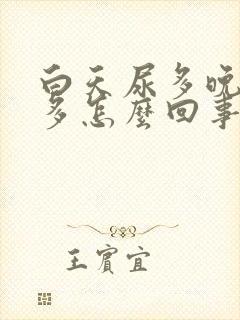 白天尿多晚
多怎麼回事
王實宜